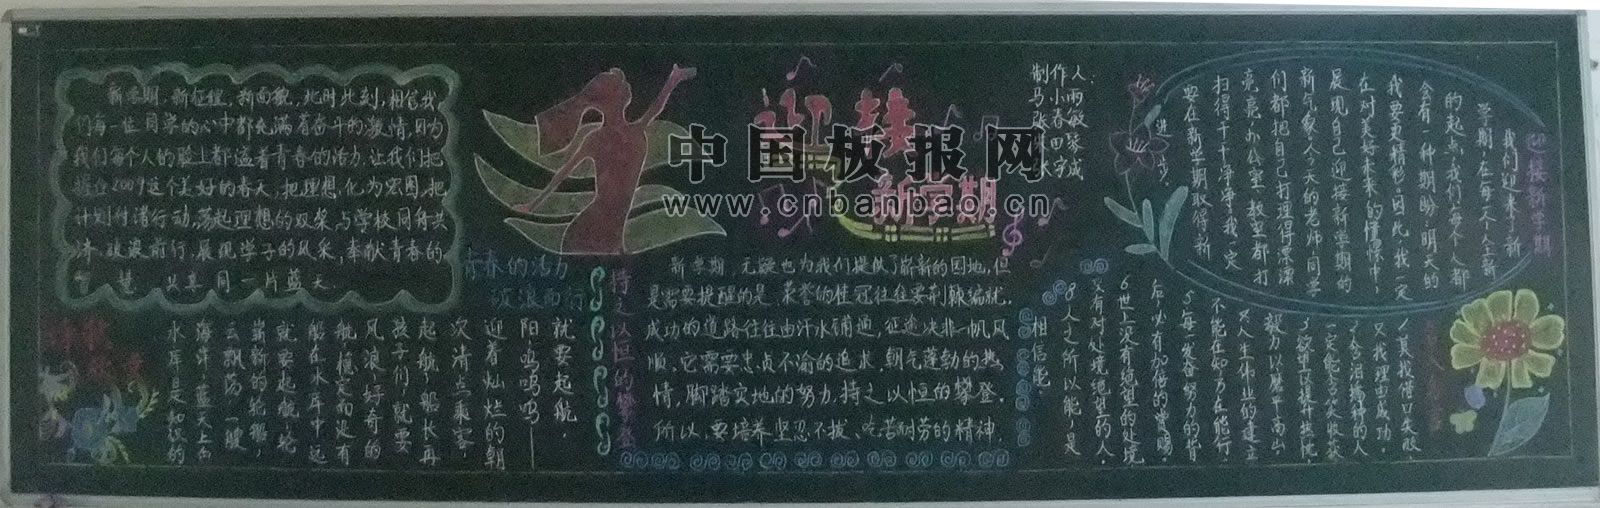 新学期,新征程,新面貌,此时此刻,相信我
们每一位同学的心中都充满着奋斗的激情,因为
我们每个人的脸上都溢着青春的活力,让我们把
握住2009这个美好的春天,把理想,化为宏图,把
计划付诸行动,荡起理想的双桨,与学校同舟共
济,破浪前行,展现学子的风采,奉献青春的
智慧 共享同一片蓝天.
青春的活力
破浪而行
迎接
新学期
中国板报网
www.cnbanbao.cn
制作人:
马小雨
张春敏
田琴
宇成
迎接新学期
我们迎来了新
学期,在每一个全新
的起点,我们每个人都
含有一种期盼,明天的
我要更精彩.因此,我一定
在对美好未来的憧憬中,
展现自己迎接新学期的
新气象,今天的老师、同学
们都把自己打理得漂漂
亮亮,办公室、教室都打
扫得干干净净,我一定
要在新学期取得新
进步.
就要起航,
阳呜呜呜——
迎着灿烂的朝
次清点乘客,
起航了,船长再
孩子们就要
风浪,好奇的
航稳定而没有
船在水库中远
就要起航,轮
崭新的轮船,
云飘荡,一艘
海洋,蓝天上白
水库是知识的
持之以恒的攀登
新学期,无疑也为我们提供了崭新的园地,但
是需要提醒的是,荣誉的桂冠往往要荆棘编就,
成功的道路往往由汗水铺通,征途决非一帆风
顺,它需要忠贞不渝的追求,朝气蓬勃的热
情,脚踏实地的努力,持之以恒的攀登。
所以,要培养坚忍不拔、吃苦耐劳的精神,
1莫找借口失败
只找理由成功,
2含泪播种的人
一定能含笑收获
3欲望以提升热忱,
毅力以磨平高山,
4人生伟业的建立
不能在知,乃在能行,
5每一发奋努力的背
后,必有加倍的赏赐,
6世上没有绝望的处境
只有对处境绝望的人,
8人之所以能,是
相信能.